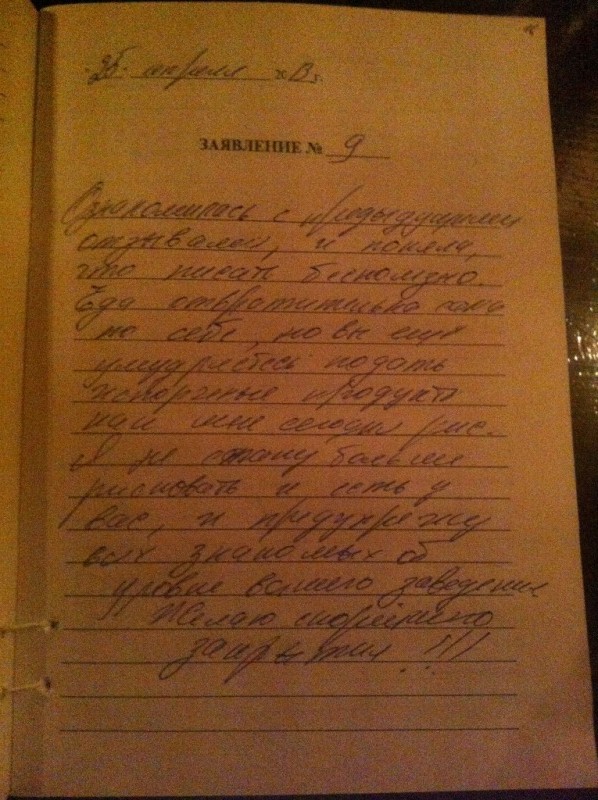 26 апреля 2013 г.
ЗАЯВЛЕНИЕ № 9
Ознакомилась с предыдущими
отзывами, и поняла,
что писать бесполезно.
Еда отвратительна сама
по себе, но вы ещё
умудряетесь подать
испорченые продукты
как мне сегодня рис.
Я не стану больше
рисковать и есть у
вас, и предупрежу
всех знакомых об
уровне вашего заведения
Желаю скорейшего
закрытия!!!